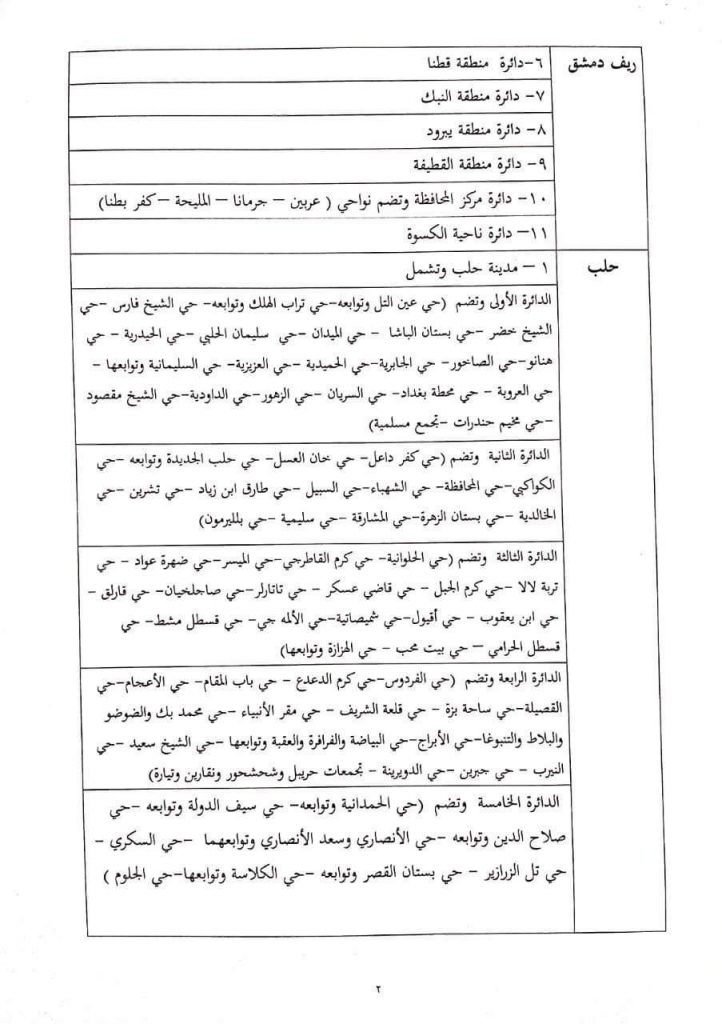 ريف دمشق
٦-دائرة منطقة قطنا
٧- دائرة منطقة النبك
٨- دائرة منطقة يبرود
٩- دائرة منطقة القطيفة
١٠- دائرة مركز المحافظة وتضم نواحي ( عربين – جرمانا – المليحة –كفر بطنا)
١١- دائرة ناحية الكسوة
حلب
١ – مدينة حلب وتشمل
الدائرة الأولى وتضم (حي عين التل وتوابعه-حي تراب الهلك وتوابعه- حي الشيخ فارس -حي
الشيخ خضر -حي بستان الباشا - حي الميدان – حي سليمان الحلبي – حي الحيدرية – حي
هنانو-حي الصاخور- حي الجابرية-حي الحميدية – حي العزيزية- حي السليمانية وتوابعها –
حي العروبة – حي محطة بغداد- حي السريان – حي الزهور-حي الداودية-حي الشيخ مقصود
-حي مخيم حندرات -تجمع مسلمية)
الدائرة الثانية وتضم (حي كفر داعل- حي خان العسل- حي حلب الجديدة وتوابعه -حي
الكواكبي-حي المحافظة- حي الشهباء-حي السبيل – حي طارق ابن زياد -حي تشرين – حي
الخالدية – حي بستان الزهرة-حي المشارقة – حي سليمية –حي بلليرمون)
الدائرة الثالثة وتضم (حي الحلوانية- حي كرم القاطرجي-حي الميسر-حي ضهرة عواد – حي
تربة لالا -حي كرم الجبل – حي قاضي عسكر – حي تاتارلر-حي صاجلخيان- حي قارلق –
حي ابن يعقوب – حي أقيول-حي شميصاتية-حي الألمه جي- حي قسطل مشط- حي
قسطل الحرامي – حي بيت محب – حي الهزازة وتوابعها)
الدائرة الرابعة وتضم (حي الفردوس-حي كرم الدعدع – حي باب المقام- حي الأعجام-حي
القصيلة-حي ساحة بزة – حي قلعة الشريف – حي مقر الأنبياء – حي محمد بك والضوضو
والبلاط والتنبوغا-حي الأبراج-حي البياضة والفرافرة والعقبة وتوابعها – حي الشيخ سعيد –حي
النيرب – حي جبرين –حي الدويرينة – تجمعات حريبل وشحشحور ونقارين وتيارة)
الدائرة الخامسة وتضم (حي الحمدانية وتوابعه- حي سيف الدولة وتوابعه –حي
صلاح الدين وتوابعه –حي الأنصاري وسعد الأنصاري وتوابعهما –حي السكري –
حي تل الزرازير – حي بستان القصر وتوابعه –حي الكلاسة وتوابعها-حي الجلوم )
٢